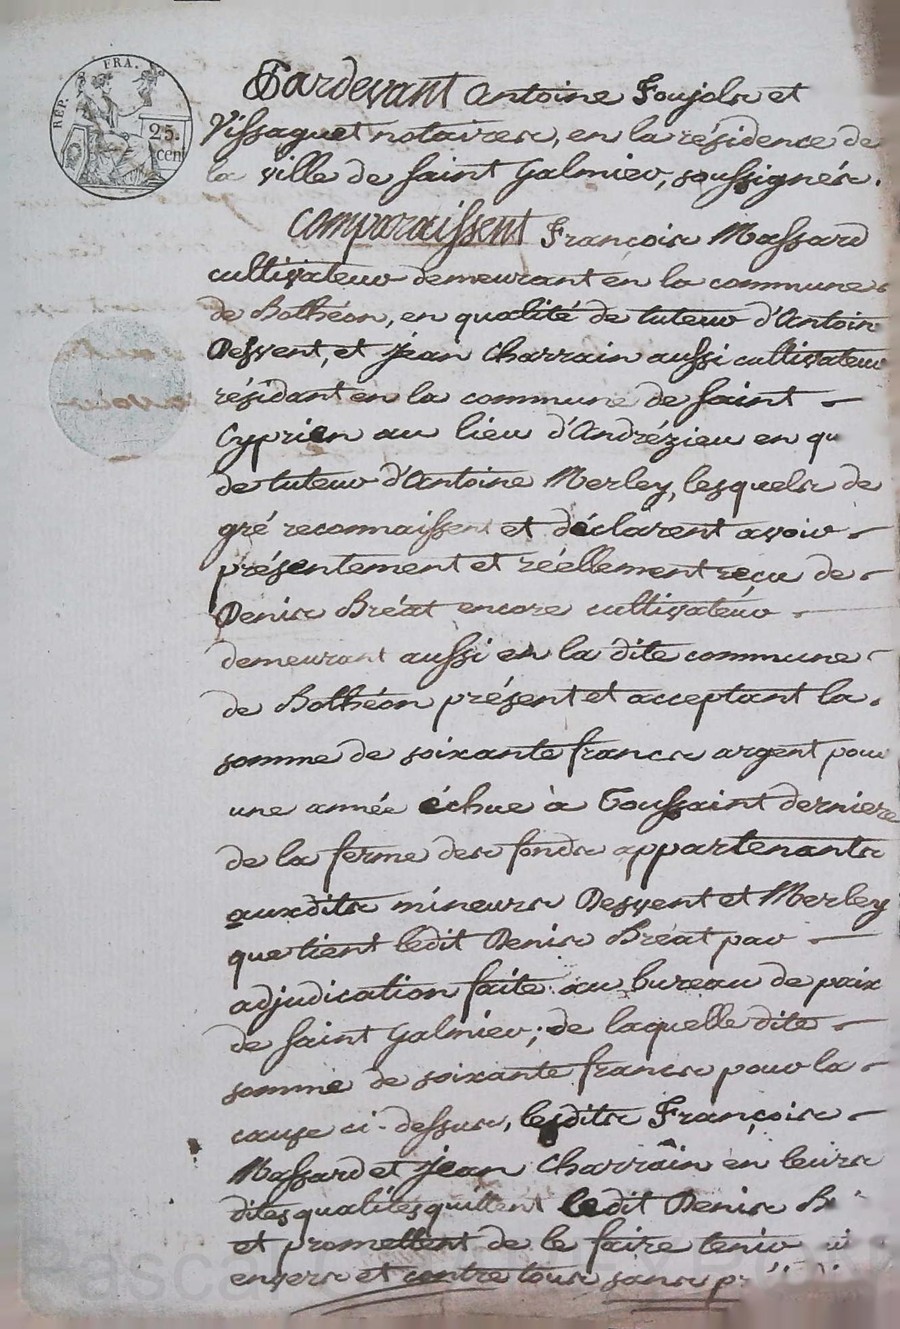 RÉP. FRA.
25.
cen
Pardevant Antoine Foujols et
Vissaguet notaires, en la résidence de
la ville de Saint Galmier, soussignés.
Comparaissent François Massard
cultivateur demeurant en la commune
de Bothéon, en qualité de tuteur d'Antoin
Desvent, et Jean Charrain aussi cultivateur
résidant en la commune de Saint
Cyprien au lieu d'Andrézieu en qu
de tuteur d'Antoine Merley, lesquels de
gré reconnaissent et déclarent avoir
présentement et réellement reçu de
Denis Bréat encore cultivateur
demeurant aussi en la dite commune
de Bothéon présent et acceptant la
somme de soixante francs argent pour
une année échue à Toussaint derniere
de la ferme des fonds appartenants
auxdits mineurs Desvent et Merley
que tient ledit Denis Bréat par
adjudication faite au bureau de paix
de Saint Galmier; de laquelle dite
somme de soixante francs pour la
cause ci-dessus, lesdits François
Massard et Jean Charrain en leurs
dites qualités quittent ledit Denis B
et promettent de le faire tenir
envers et contre tous sans